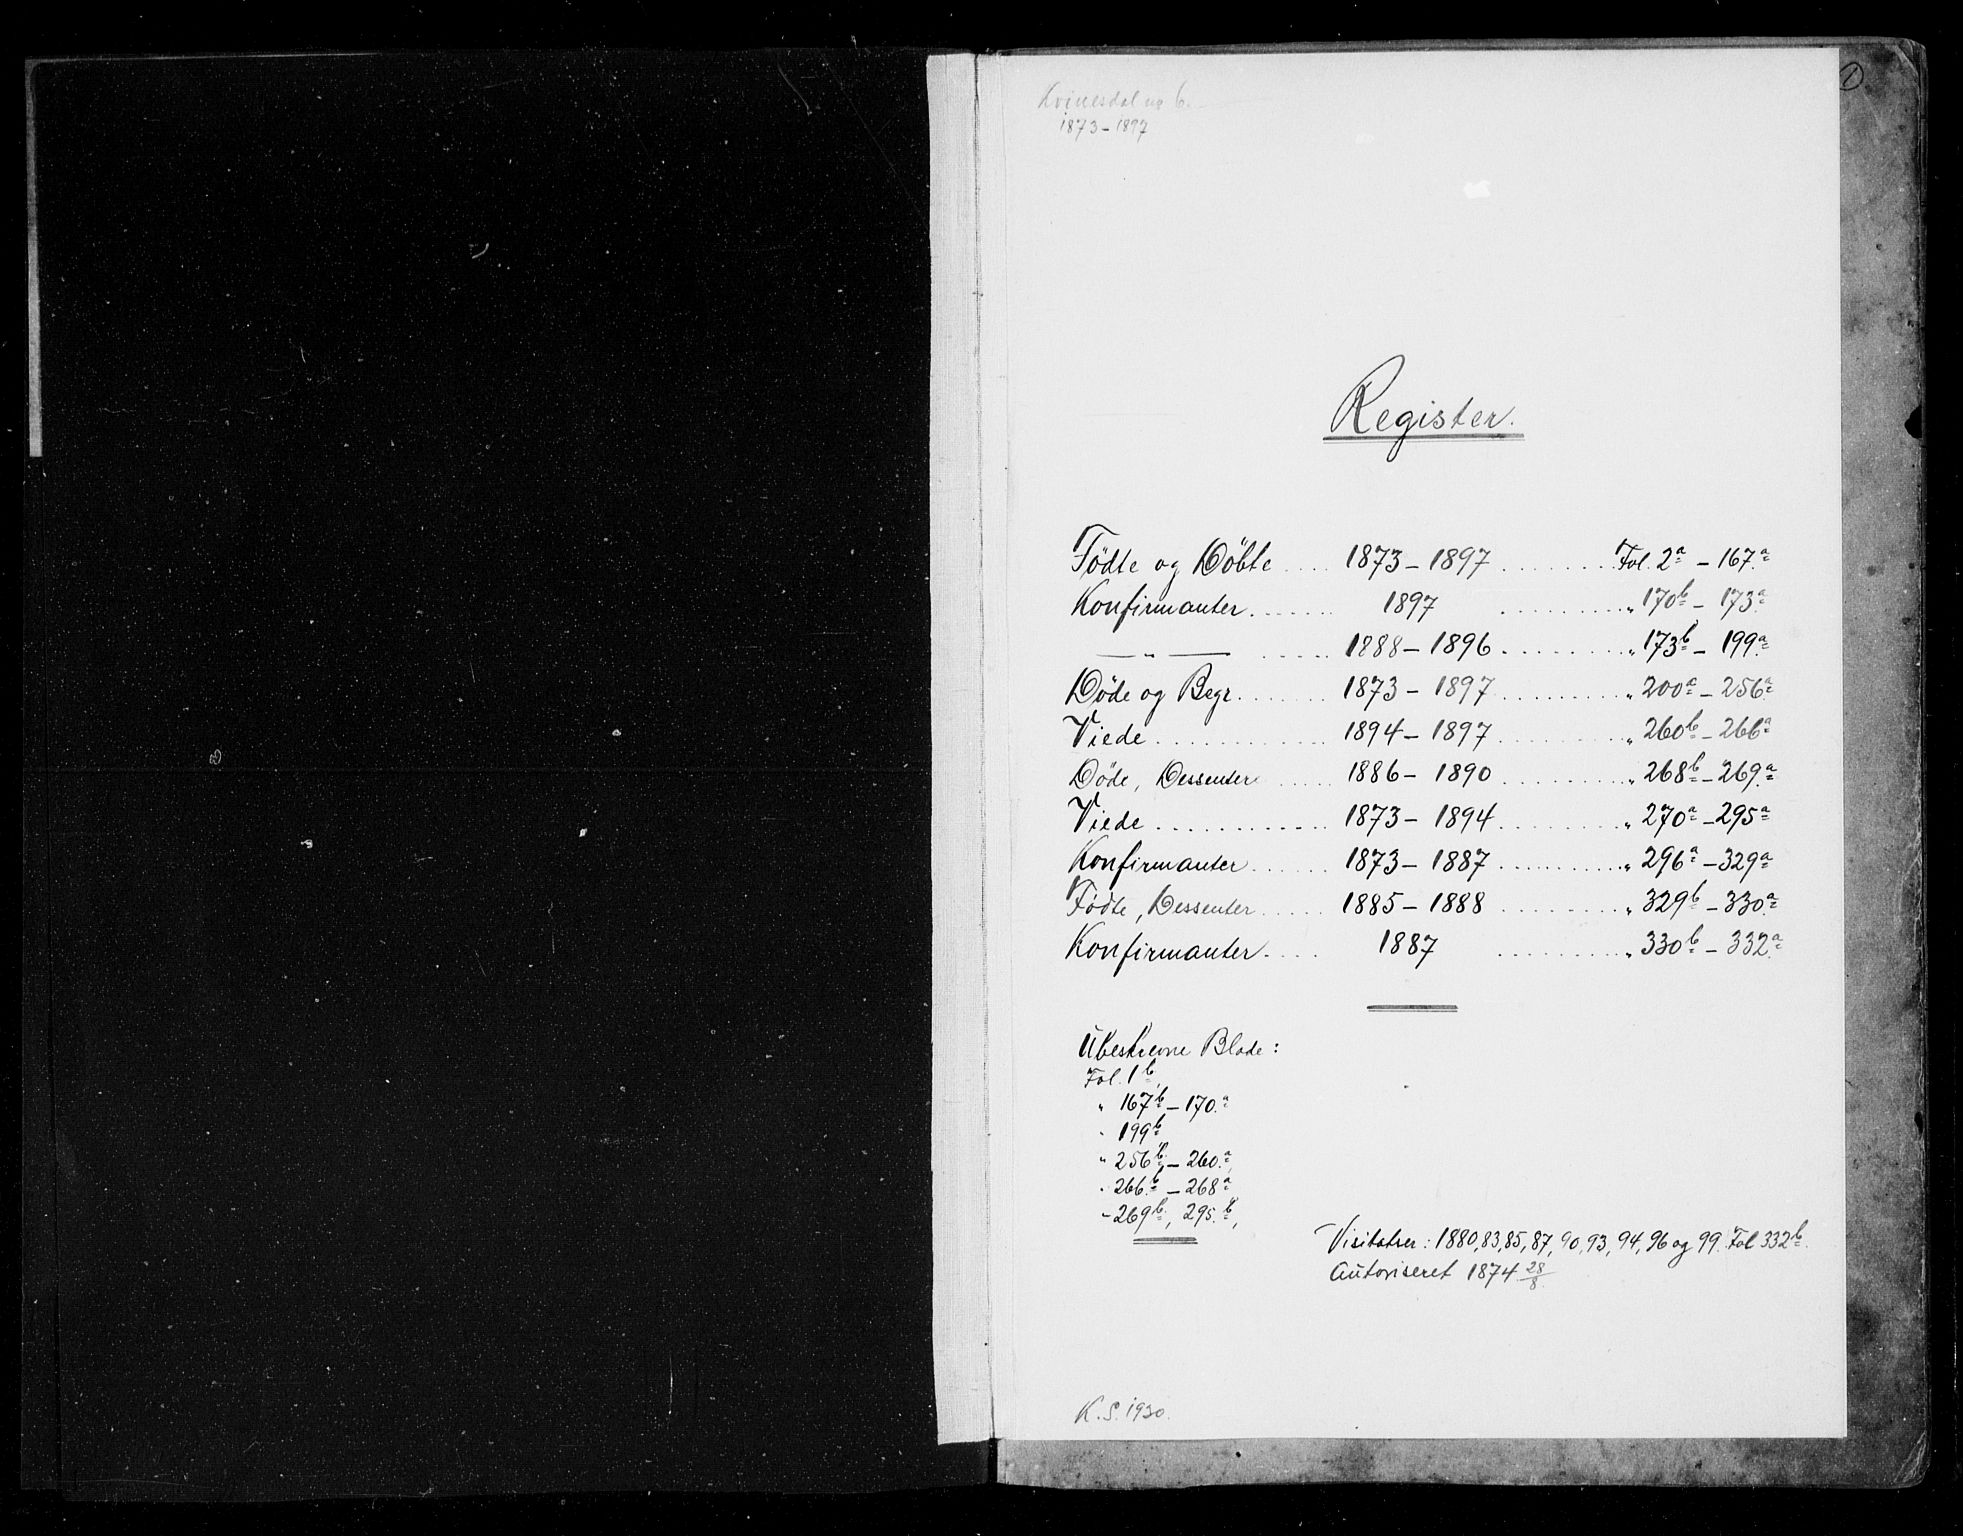 1
Kvinesdal nr 6.
1873-1897
Register.
Födte og Döbte .... 1873-1897 ........ Fol. 2a - 167.a
Konfirmanter ....... 1897 ........... " 170b - 173a
— " — ..... 1888-1896 ........ " 173b - 199a
Døde og Begr. ...... 1873-1897 ........ " 200a - 256a
Viede ............ 1894-1897 ........ " 260b - 266a
Döde, Dessenter ..... 1886-1890 ........ " 268b - 269.a
Viede ............ 1873-1894 ........ " 270a - 295a
Konfirmanter ...... 1873-1887 ........ " 296a - 329a
Födte, Dessenter ..... 1885-1888 ........ " 329b - 330.a
Konfirmanter .... 1887 ........... " 330b - 332a
Ubeskrevne Blade:
Fol. 1b,
" 167b - 170.a
" 199b
" 256b - 260.a,
" 266.b - 268a
" 269b, 295.b,
Visitatser: 1880, 83, 85, 87, 90, 93, 94, 96 og 99. Fol 332b.
Autoriseret 1874 28/8.
K. S. 1930.